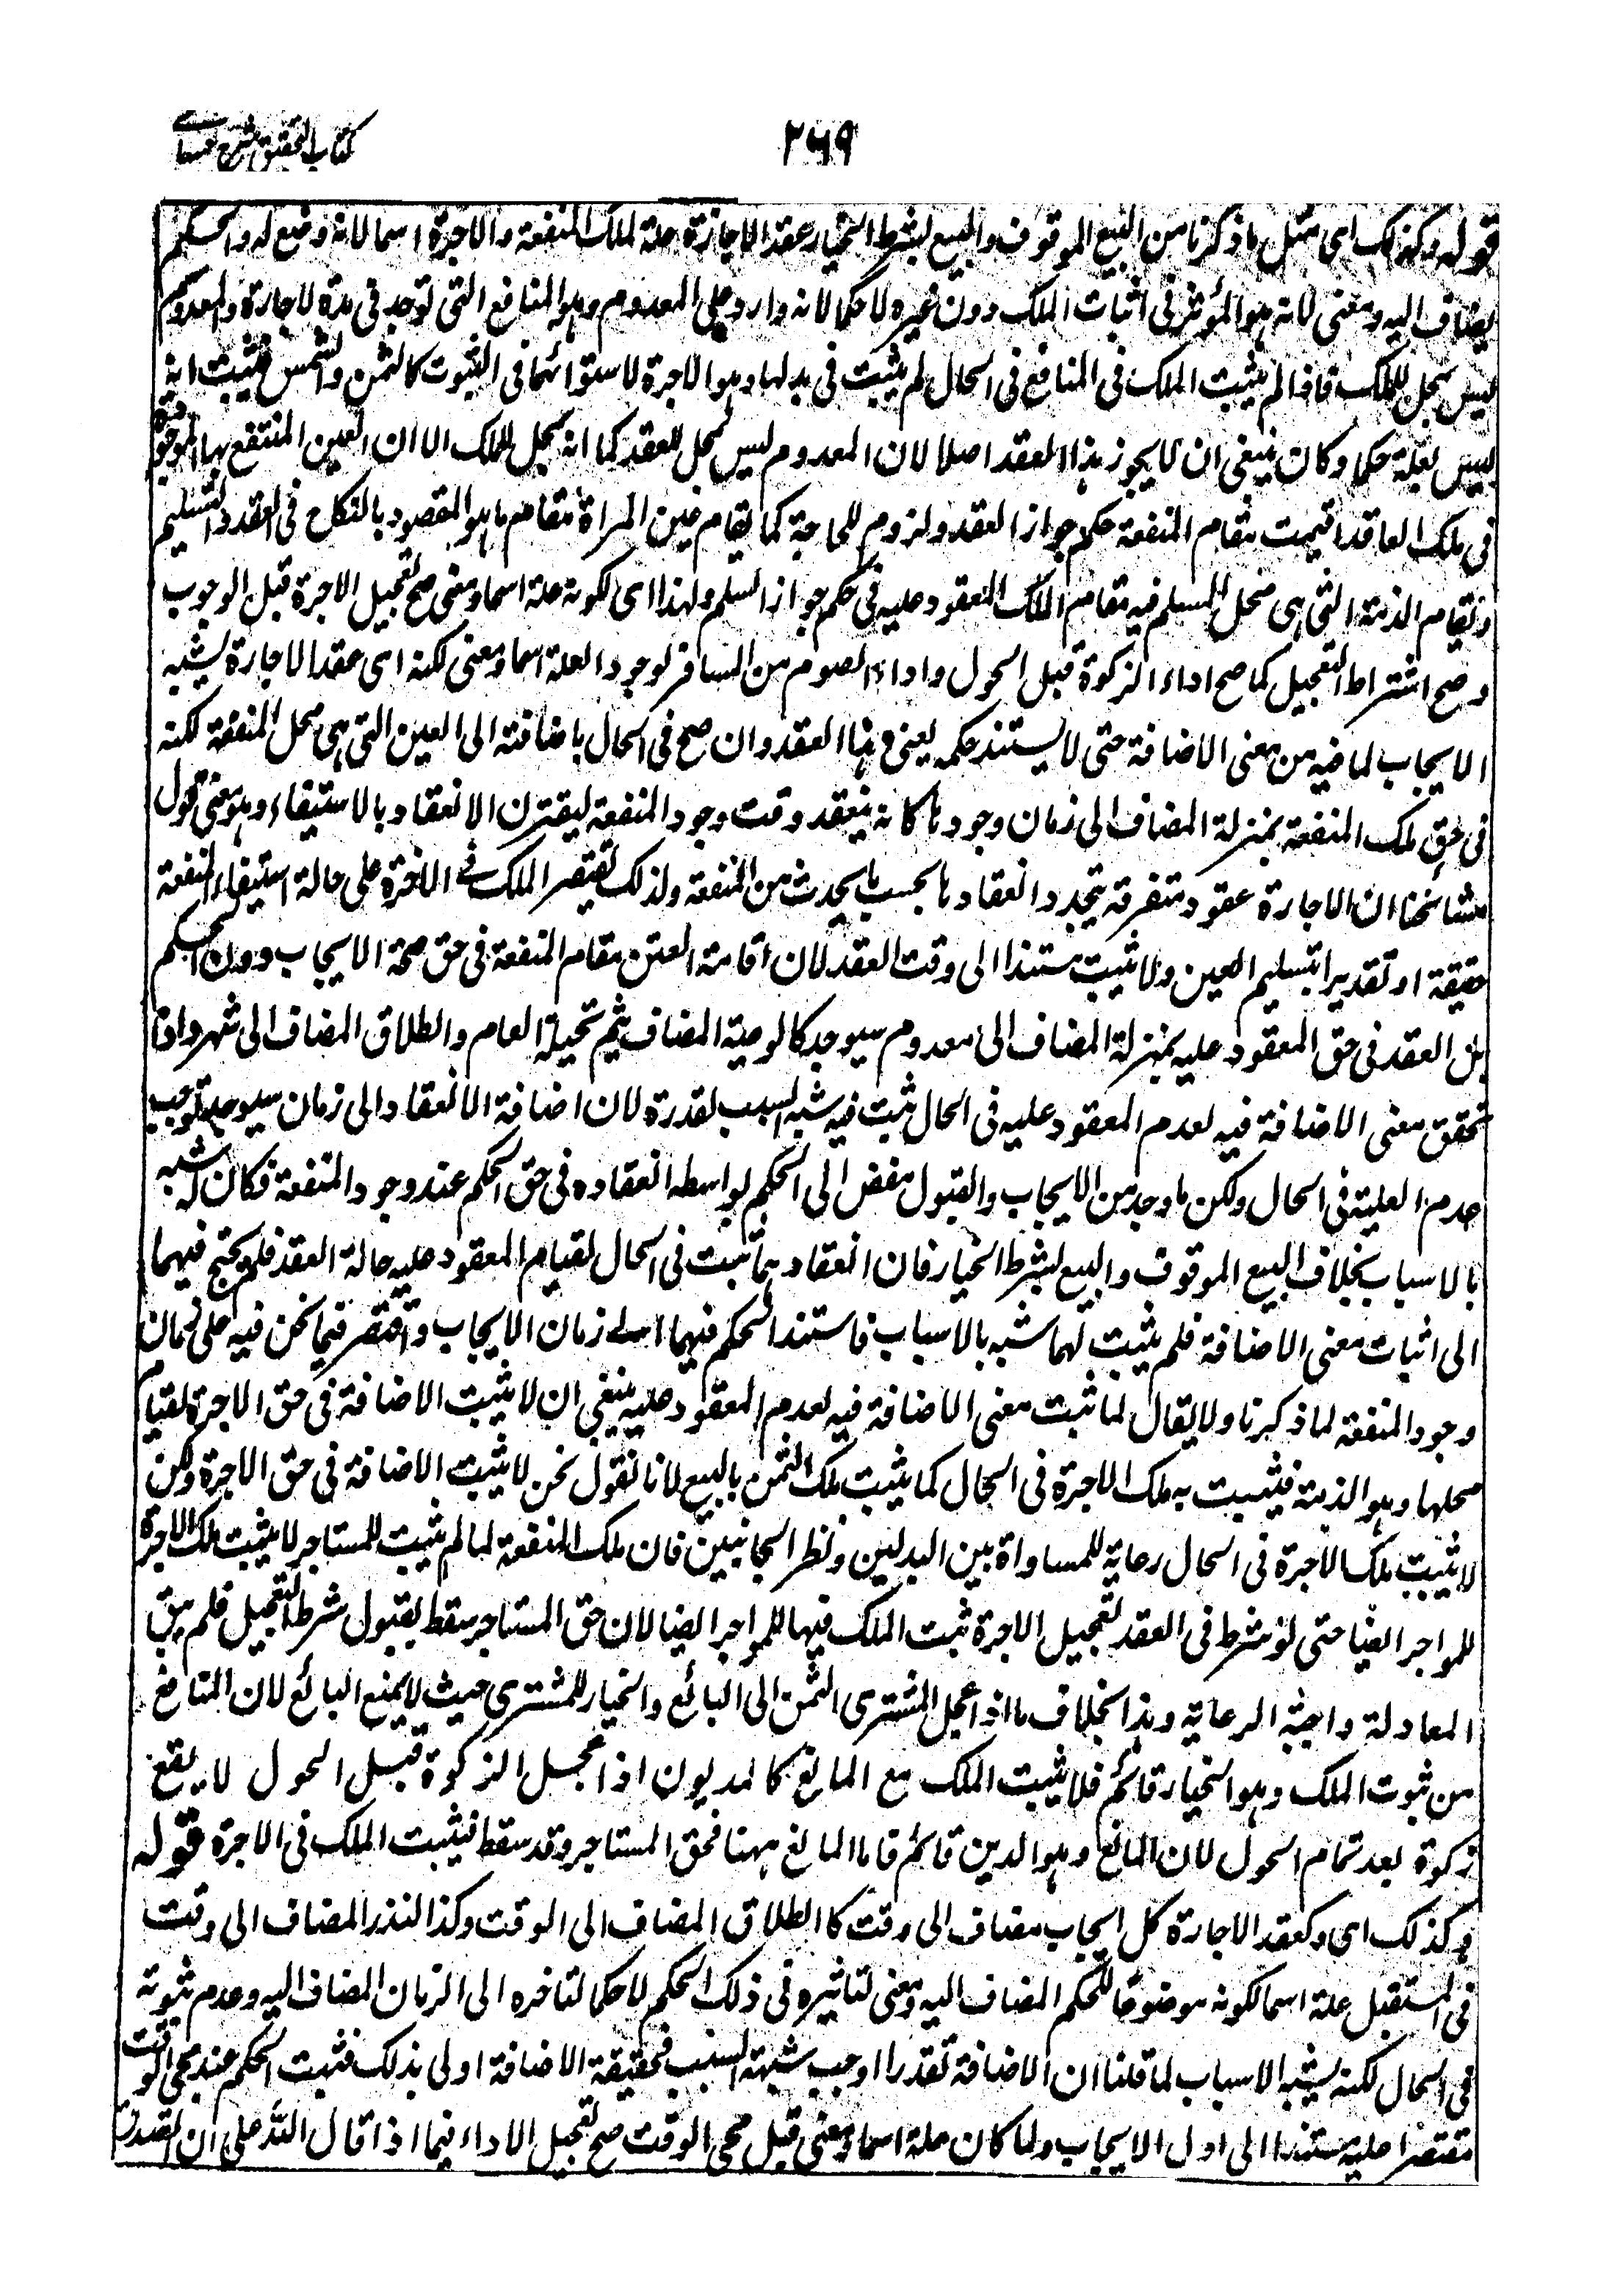 كتاب التحقيق شرح حسامي
٢٦٩
قوله وكذلك اى مثل ما ذكرنا من البيع الموقوف والبيع بشرط الخيار عقد الاجازة علة لملك المنفعة والاجرة اسما لانه وضع له والحكم
يضاف اليه ومعنى لانه هو المؤثر فى اثبات الملك دون غيره لا حكما لانه وارد على المعدوم وهو المنافع التى توجد فى مدة لاجارة والمعدوم
ليس بمحل للملك فاذا لم يثبت الملك فى المنافع فى الحال لم يثبت فى بدلها وهو الاجرة لاستوائهما فى الثبوت كالثمن والثمن فثبت انه
ليس بعلة حكما وكان ينبغى ان لا يجوز هذا العقد اصلا لان المعدوم ليس بمحل للعقد كما انه بمحل للملك الا ان العين المنتفع بها الموجودة
فى ملك العاقد اقيمت مقام المنفعة حكم جواز العقد ولزوم للحاجة كما يقام عين المرأة مقام ما هو المقصود بالنكاح فى العقد والتسليم
وتقام الذمة التى هى محل المسلم فيه مقام الملك المعقود عليه فى حكم جواز السلم ولهذا اى لكونه علة اسما ومعنى صح تعجيل الاجرة قبل الوجوب
وصح اشتراط التعجيل كما صح اداء الزكوة قبل الحول واداء الصوم من المسافر لوجود العلة اسما ومعنى لكنه اى عقد الاجارة يشبه
الايجاب لما فيه من معنى الاضافة حتى لا يستند حكمه يعنى هذا العقد وان صح فى الحال باضافته الى العين التى هى محل المنفعة لكنه
فى حق ملك المنفعة بمنزلة المضاف الى زمان وجودها كانه ينعقد وقت وجود المنفعة ليقترن الانعقاد بالاستيفاء وهو معنى قول
مشائخنا ان الاجارة عقود متفرقة يتجدد انعقادها بحسب ما يحدث من المنفعة ولذلك يقتصر الملك فى الاجرة على حالة استيفاء المنفعة
حقيقة او تقديرا بتسليم العين ولا يثبت مستندا الى وقت العقد لان اقامة العين مقام المنفعة فى حق صحة الايجاب دون الحكم
بل العقد فى حق المعقود عليه بمنزلة المضاف الى معدوم سيوجد كالوصية المضاف العام والطلاق المضاف الى شهر واذا
تحقق معنى الاضافة فيه لعدم المعقود عليه فى الحال ثبت فيه شبه السبب لقدرة لان اضافة الانعقاد الى زمان سيوجد توجب
عدم العلية فى الحال ولكن ما وجد من الايجاب والقبول مفض الى الحكم بواسطة انعقاده فى حق الحكم عند وجود المنفعة فكان له شبه
بالاسباب بخلاف البيع الموقوف والبيع بشرط الخيار فان انعقادهما ثبت فى الحال لقيام المعقود عليه حالة العقد فلم يحتج فيهما
الى اثبات معنى الاضافة فلم يثبت لهما شبه بالاسباب فاستند الحكم فيهما الى زمان الايجاب واقتصر فيما نحن فيه على زمان
وجود المنفعة لما ذكرنا ولا يقال لما ثبت معنى الاضافة فيه لعدم المعقود عليه ينبغى ان لا يثبت الاضافة فى حق الاجرة لقيام
محلها وهو الذمة فيثبت به ملك الاجرة فى الحال كما يثبت ملك الثمن بالبيع لانا نقول نحن لا يثبت الاضافة فى حق الاجرة ولكن
لا يثبت ملك الاجرة فى الحال رعاية للمساواة بين البدلين ونظر الجانبين فان ملك المنفعة لما لم يثبت للمستاجر لا يثبت ملك الاجرة
للمواجر ايضا حتى لو شرط فى العقد تعجيل الاجرة ثبت الملك فيها للمواجر ايضا لان حق المستاجر سقط بقبول شرط التعجيل فلم يبق
المعادلة واجبة الرعاية وهذا بخلاف ما اذا عجل المشترى الثمن الى البائع والخيار للمشترى حيث لا يمنع البائع لان المانع
من ثبوت الملك وهو الخيار قائم فلا يثبت الملك مع المانع كالمديون اذا عجل الزكوة قبل الحول لا يقع
زكوة بعد تمام الحول لان المانع وهو الدين قائم فاما المانع ههنا فحق المستاجر وقد سقط فيثبت الملك فى الاجرة قوله
وكذلك اى وكعقد الاجارة كل ايجاب مضاف الى وقت كالطلاق المضاف الى الوقت وكذا النذر المضاف الى وقت
فى المستقبل علة اسما لكونه موضوعا للحكم المضاف اليه ومعنى لتاثيره فى ذلك الحكم لا حكما لتاخره الى الزمان المضاف اليه وعدم ثبوته
فى الحال لكنه يشبه الاسباب لما قلنا ان الاضافة تقديرا اوجب شبهة السبب فحقيقة الاضافة اولى بذلك فثبت الحكم عند مجئ الوقت
مقتصرا عليه مستندا الى اول الايجاب ولما كان علة اسما ومعنى قبل مجئ الوقت صح تعجيل الاداء فيما اذا قال لله على ان اتصدق